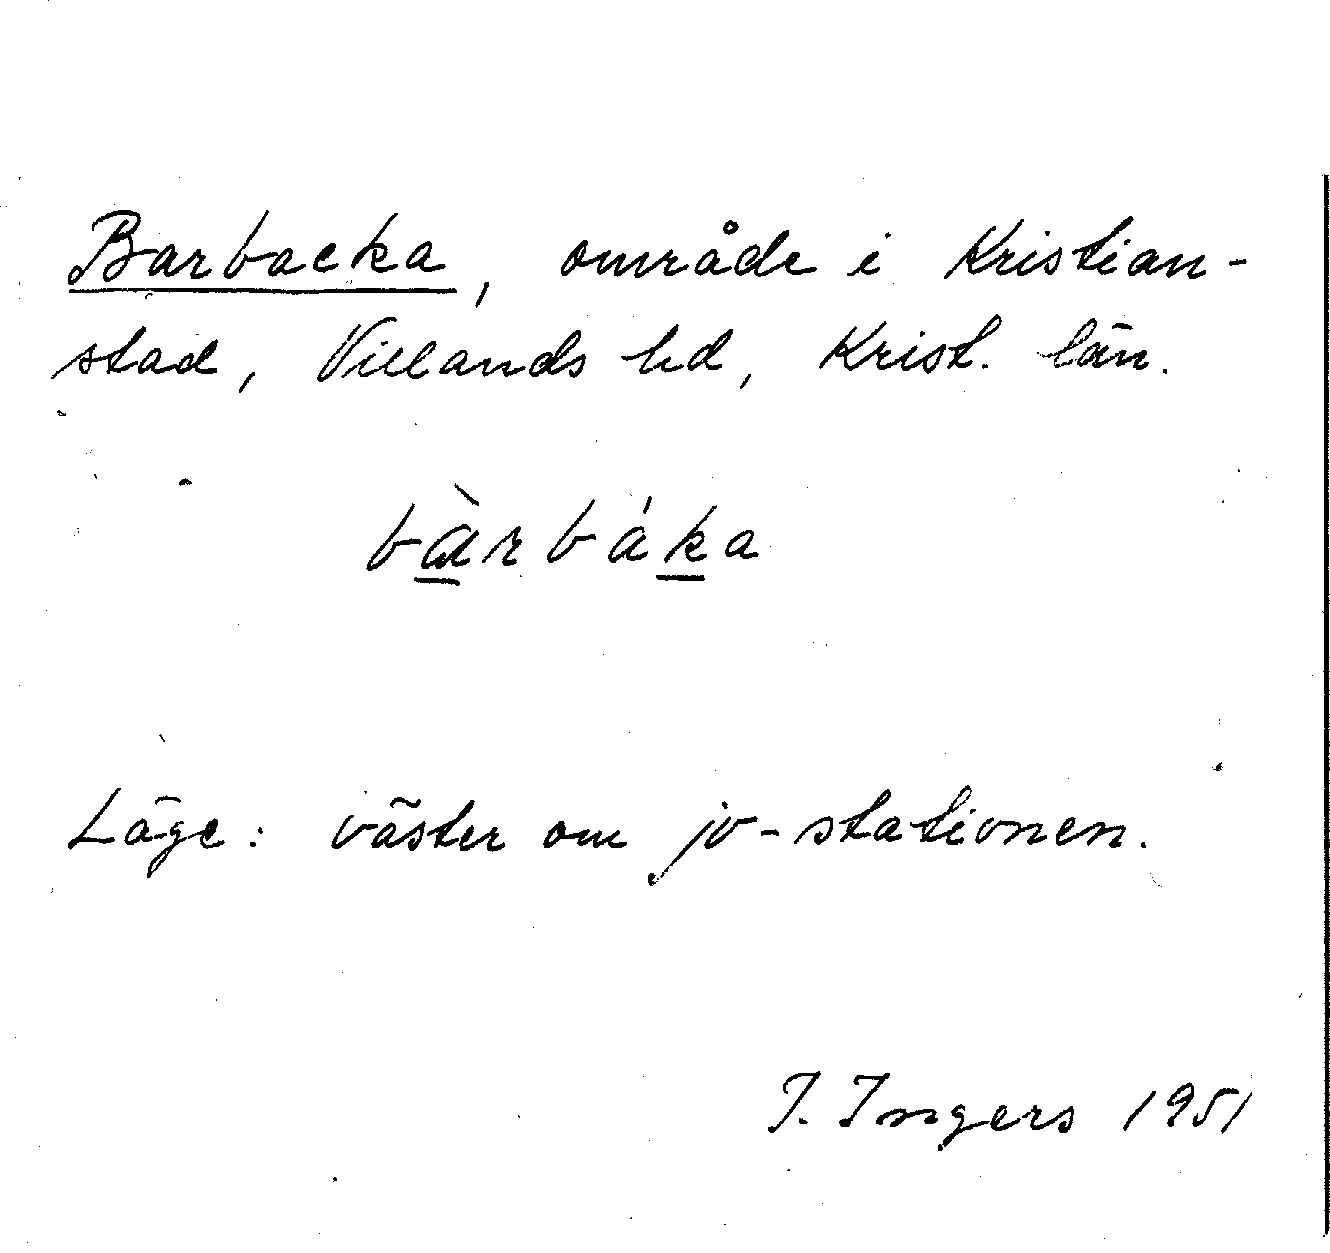 Barbacka, område i Kristian-
stad, Villands hd, Krist. län.
bàrbáka
Läge: väster om jv-stationen.
I. Ingers 1951